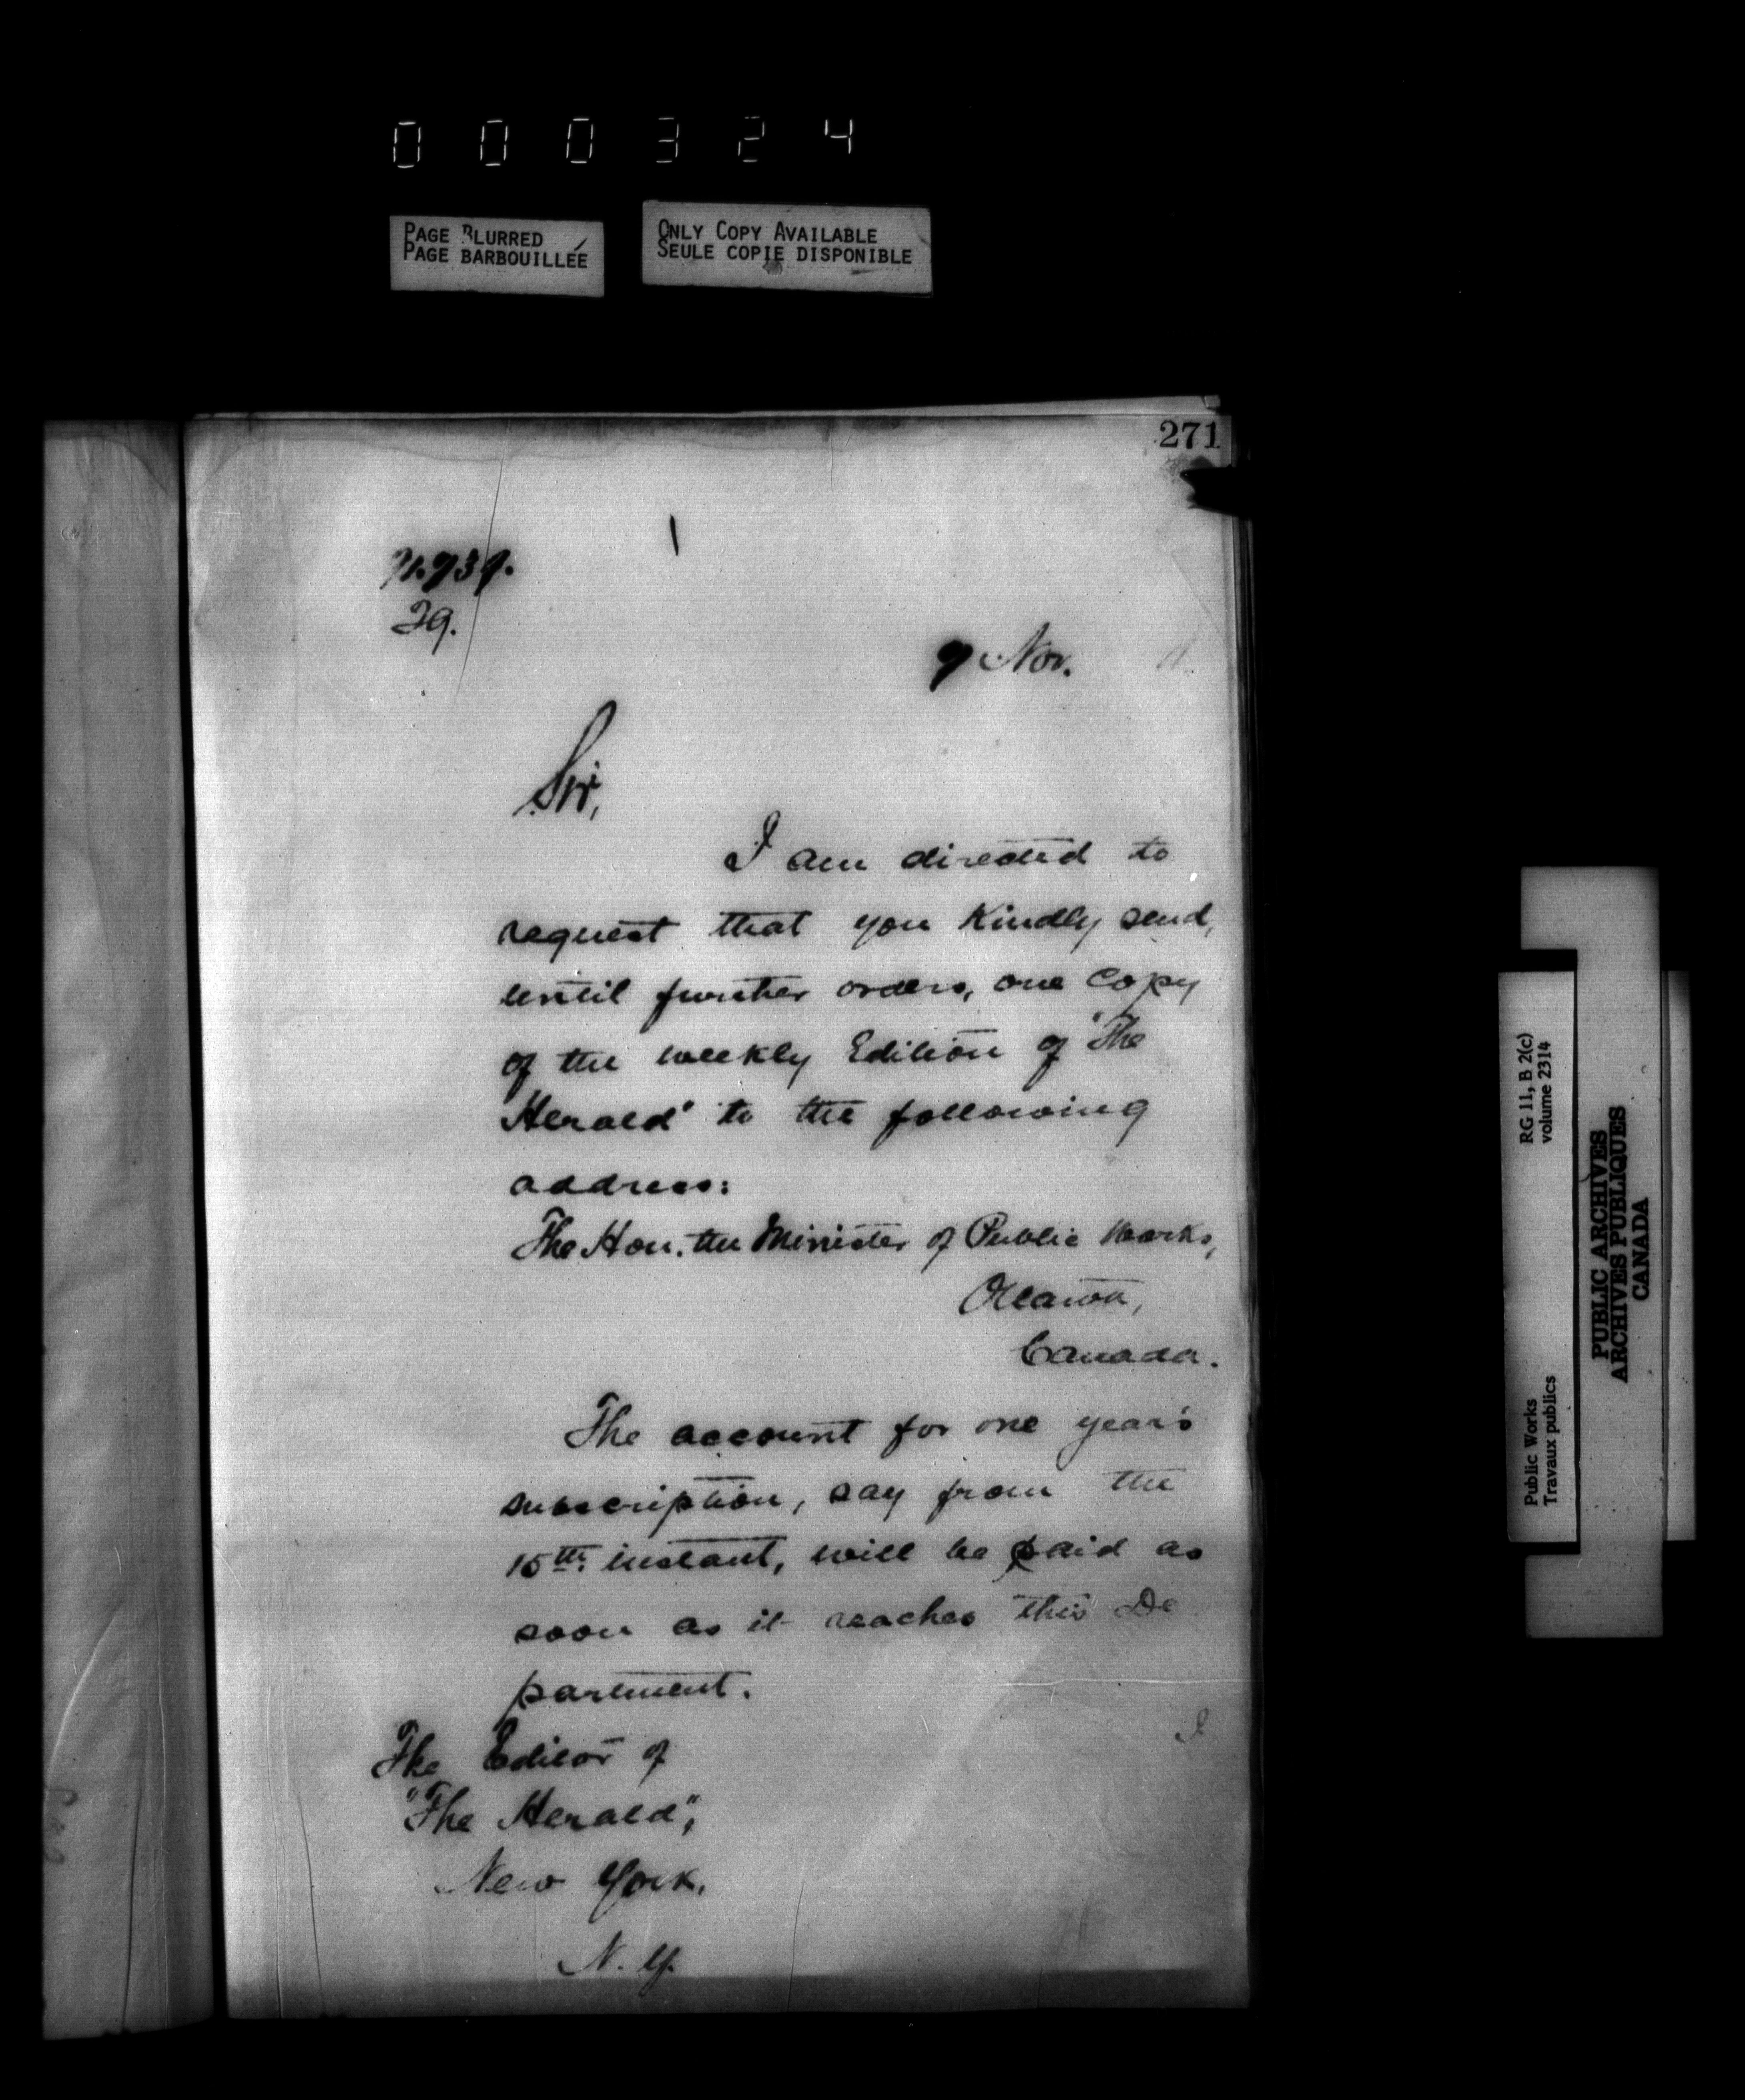 000324
PAGE BLURRED
PAGE BARBOUILLÉE
ONLY COPY AVAILABLE
SEULE COPIE DISPONIBLE
271
29.
9 Nov.
Sir,
I am directed to
request that you Kindly send,
until further orders, one Copy
of the weekly Edition of "The
Herald" to the following
address:
The Hon. the Minister of Public Works,
Ottawa,
Canada.
The account for one year's
subscription, say from the
15th. instant, will be paid as
soon as it reaches this De
partment.
The Editor of
"The Herald",
New York,
N. Y.
Public Works
Travaux publics
RG 11, B 2(c)
volume 2314
PUBLIC ARCHIVES
ARCHIVES PUBLIQUES
CANADA